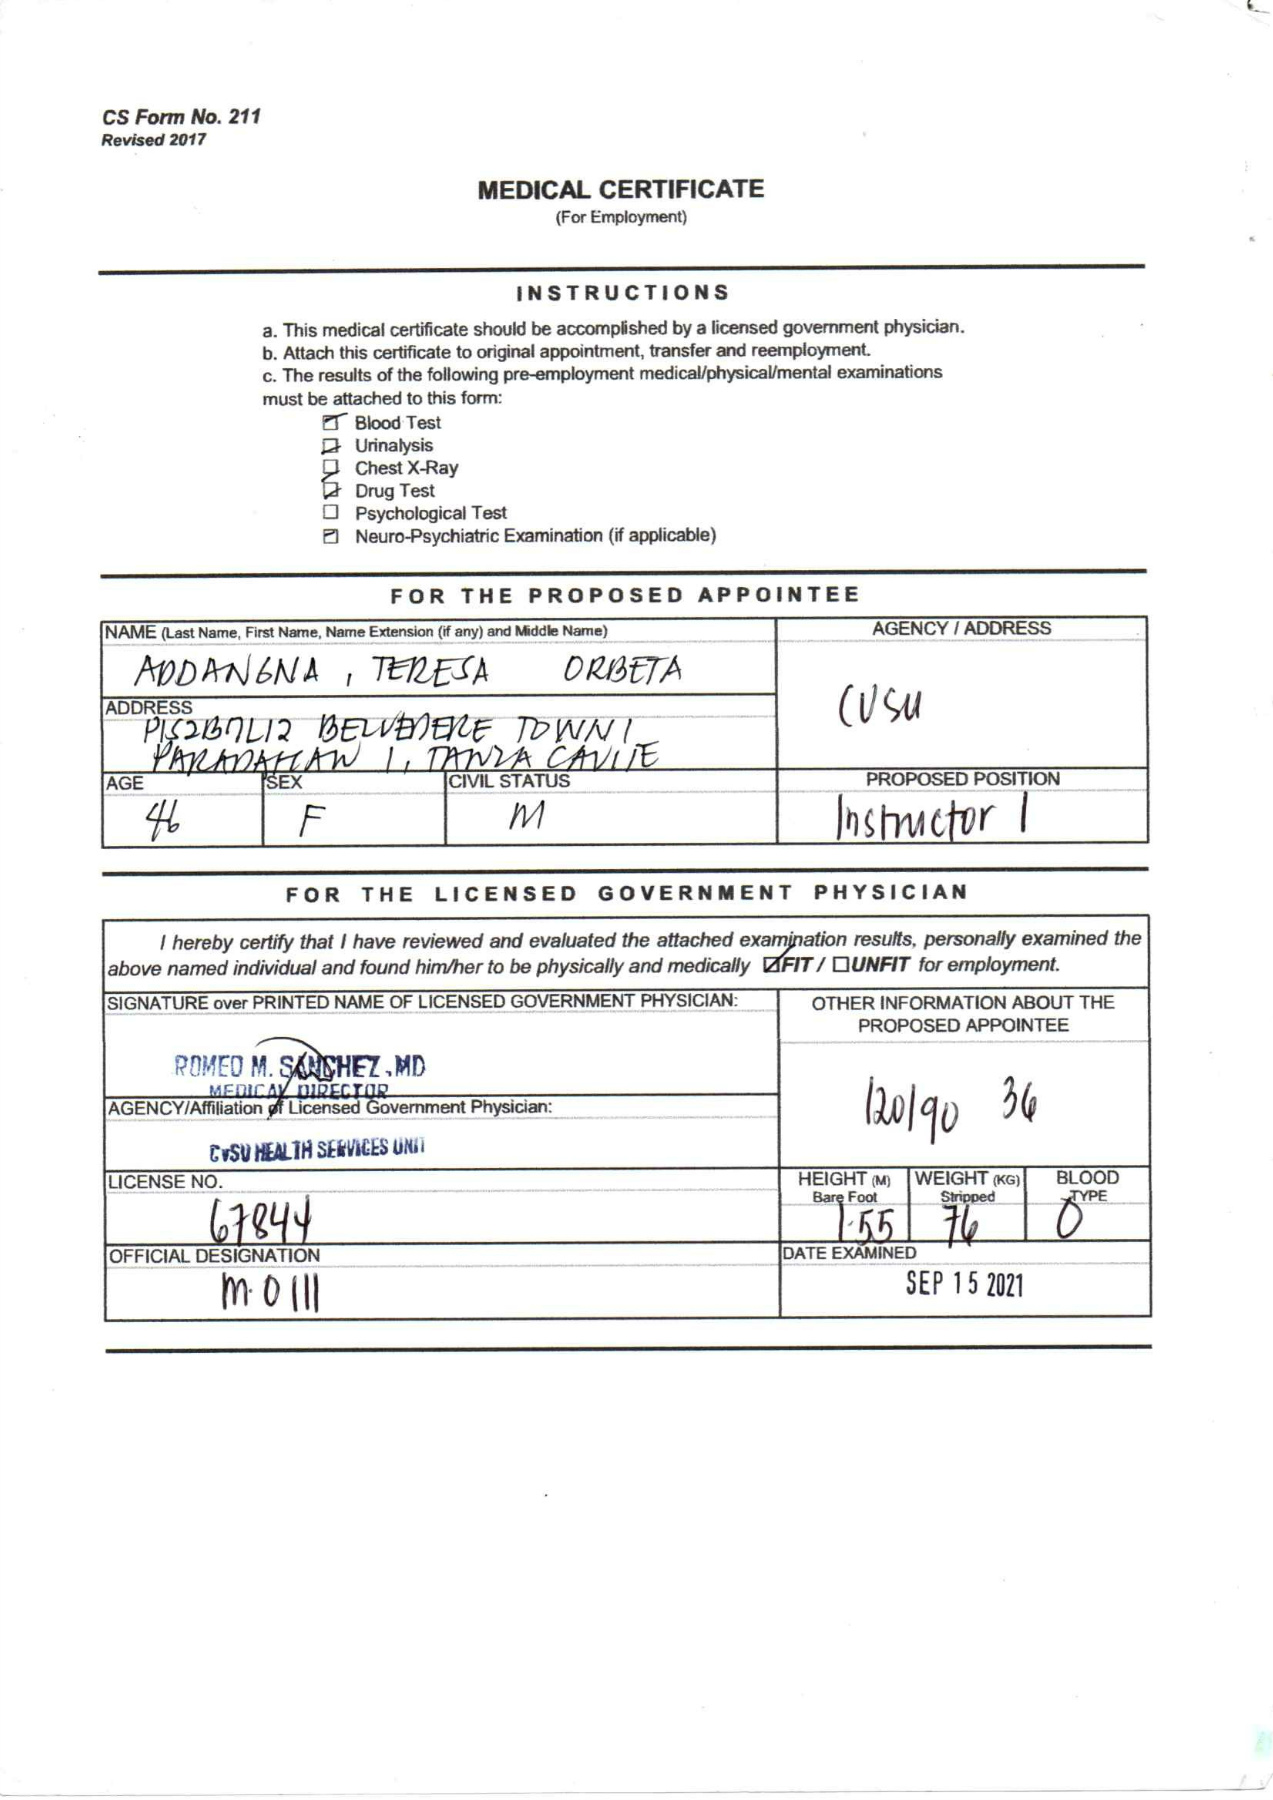 CS Form No. 211
Revised 2017
MEDICAL CERTIFICATE
(For Employment)
INSTRUCTIONS
a. This medical certificate should be accomplished by a licensed government physician.
b. Attach this certificate to original appointment, transfer and reemployment.
c. The results of the following pre-employment medical/physical/mental examinations
must be attached to this form:
Blood Test
Urinalysis
Chest X-Ray
Drug Test
Psychological Test
Neuro-Psychiatric Examination (if applicable)
FOR THE PROPOSED APPOINTEE
NAME (Last Name, First Name, Name Extension (if any) and Middle Name)
ADDANGNA , TERESA ORBETA
AGENCY / ADDRESS
CVSU
ADDRESS
BELVEDERE TOWN 1
PARADAHAN 1, TANZA CAVITE
AGE
46
SEX
F
CIVIL STATUS
M
PROPOSED POSITION
Instructor 1
FOR THE LICENSED GOVERNMENT PHYSICIAN
I hereby certify that I have reviewed and evaluated the attached examination results, personally examined the
above named individual and found him/her to be physically and medically FIT / UNFIT for employment.
SIGNATURE over PRINTED NAME OF LICENSED GOVERNMENT PHYSICIAN:
ROMEO M. SANCHEZ, MD
MEDICAL DIRECTOR
OTHER INFORMATION ABOUT THE
PROPOSED APPOINTEE
120/90 36
AGENCY/Affiliation of Licensed Government Physician:
CvSU HEALTH SERVICES UNIT
LICENSE NO.
67844
HEIGHT (M)
Bare Foot
1.55
WEIGHT (KG)
Stripped
76
BLOOD
TYPE
O
OFFICIAL DESIGNATION
M.O III
DATE EXAMINED
SEP 15 2021